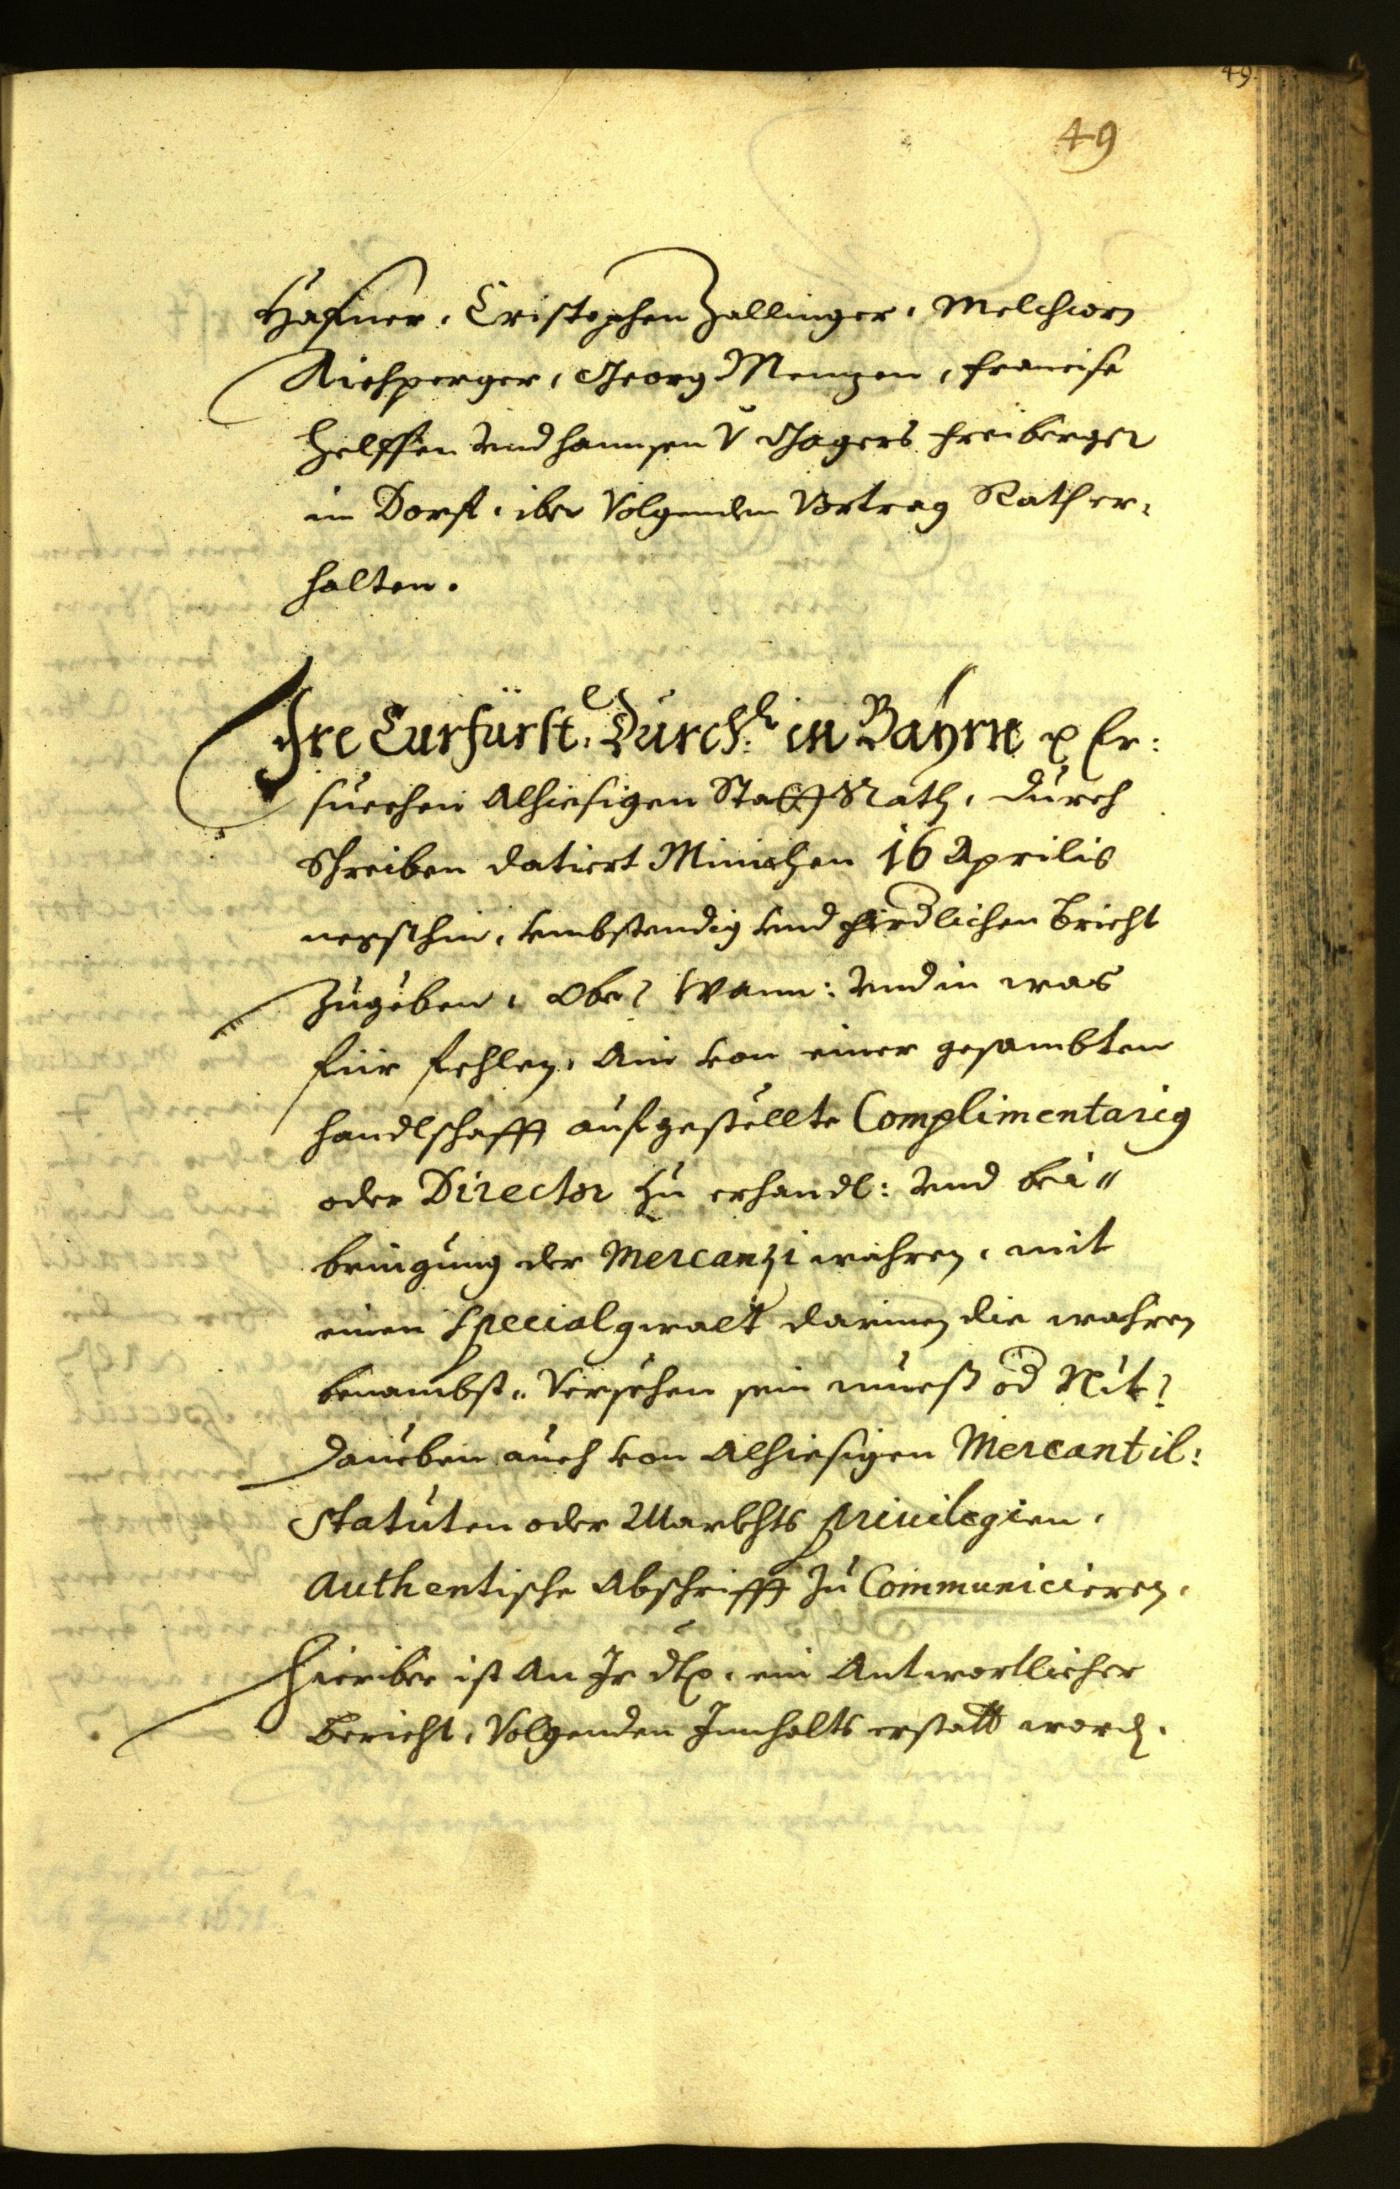 49
49
Hafner, Cristophen Zallinger, Melchiorn
Kirchperger, Georg Menzen, Francisc
Helffen vnd Hannsen Freiberger
in Dorf, iber Volgenden Vortrag Rath er:
halten.
Ire Curfürstl: Durchl: in Bayrn Er:
suechen Alhiesigen Statt Rath, durch
Schreiben datiert Minichen 16 Aprilis
negsthin, vmbstendig vnd Bricht
Zugeben, Ob? Wann: vnd in was
für fehlen, Ain von einer gesambten
handlschafft aufgestellte Complimentarig
oder Director zu erhandl: vnd bei"
bringung der Mercanzi wahren, mit
einen Specialgwalt darinen die wahren
benambst, Versehen sein muess od Nit?
Daneben auch von Alhiesigen Mercantil:
Statuten oder Markhts Privilegien,
Authentische Abschrifft zu Communicieren,
Hieriber ist An Ir ein Antwortlicher
Bericht, Volgenden Innhalts erstatt word.